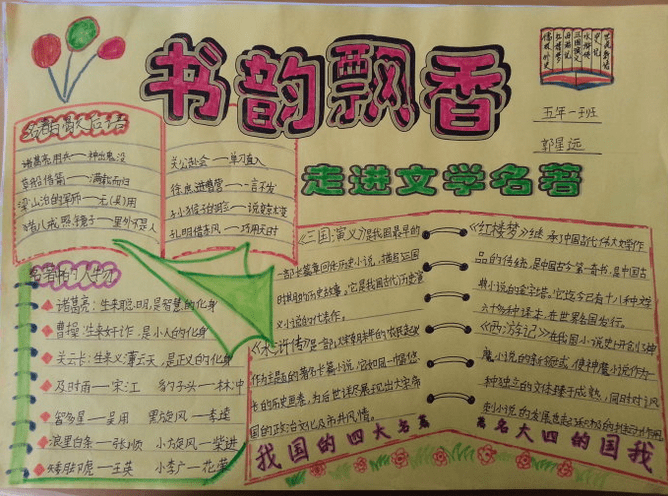 书韵飘香
走进文学名著
五年一班
郭星远
名著与歇后语
诸葛亮用兵——神出鬼没
草船借箭——满载而归
梁山泊的军师——无(吴)用
猪八戒照镜子——里外不是人
关公赴会——单刀直入
徐庶进曹营——一言不发
孔明借东风——巧用天时
名著中的人物
诸葛亮:生来聪明,是智慧的化身
曹操:生来奸诈,是小人的化身
关云长:生来义薄云天,是正义的化身
及时雨——宋江 豹子头——林冲
智多星——吴用 黑旋风——李逵
浪里白条——张顺 小旋风——柴进
矮脚虎——王英 小李广——花荣
《三国演义》是我国最早的
一部长篇章回体历史小说,描写三国
时期的历史故事。它是我国古代历史演
义小说的代表作。
《水浒传》是一部以
作为主题的著名长篇小说,它如同一幅悠
长的历史画卷,为后世详尽展现出大宋帝
国的政治文化及市井风情。
我国的四大名著
《红楼梦》继承了中国古代伟大文学作
品的传统,是中国古今第一奇书,是中国古
典小说的金字塔。它迄今已有十八种文字
六十多种译本,在世界各国发行。
《西游记》在我国小说史上开创了神
魔小说的新领域,使神魔小说作为
一种独立的文体臻于成熟,同时对讽
刺小说的发展也起了积极的推动作用
著名大四的国我